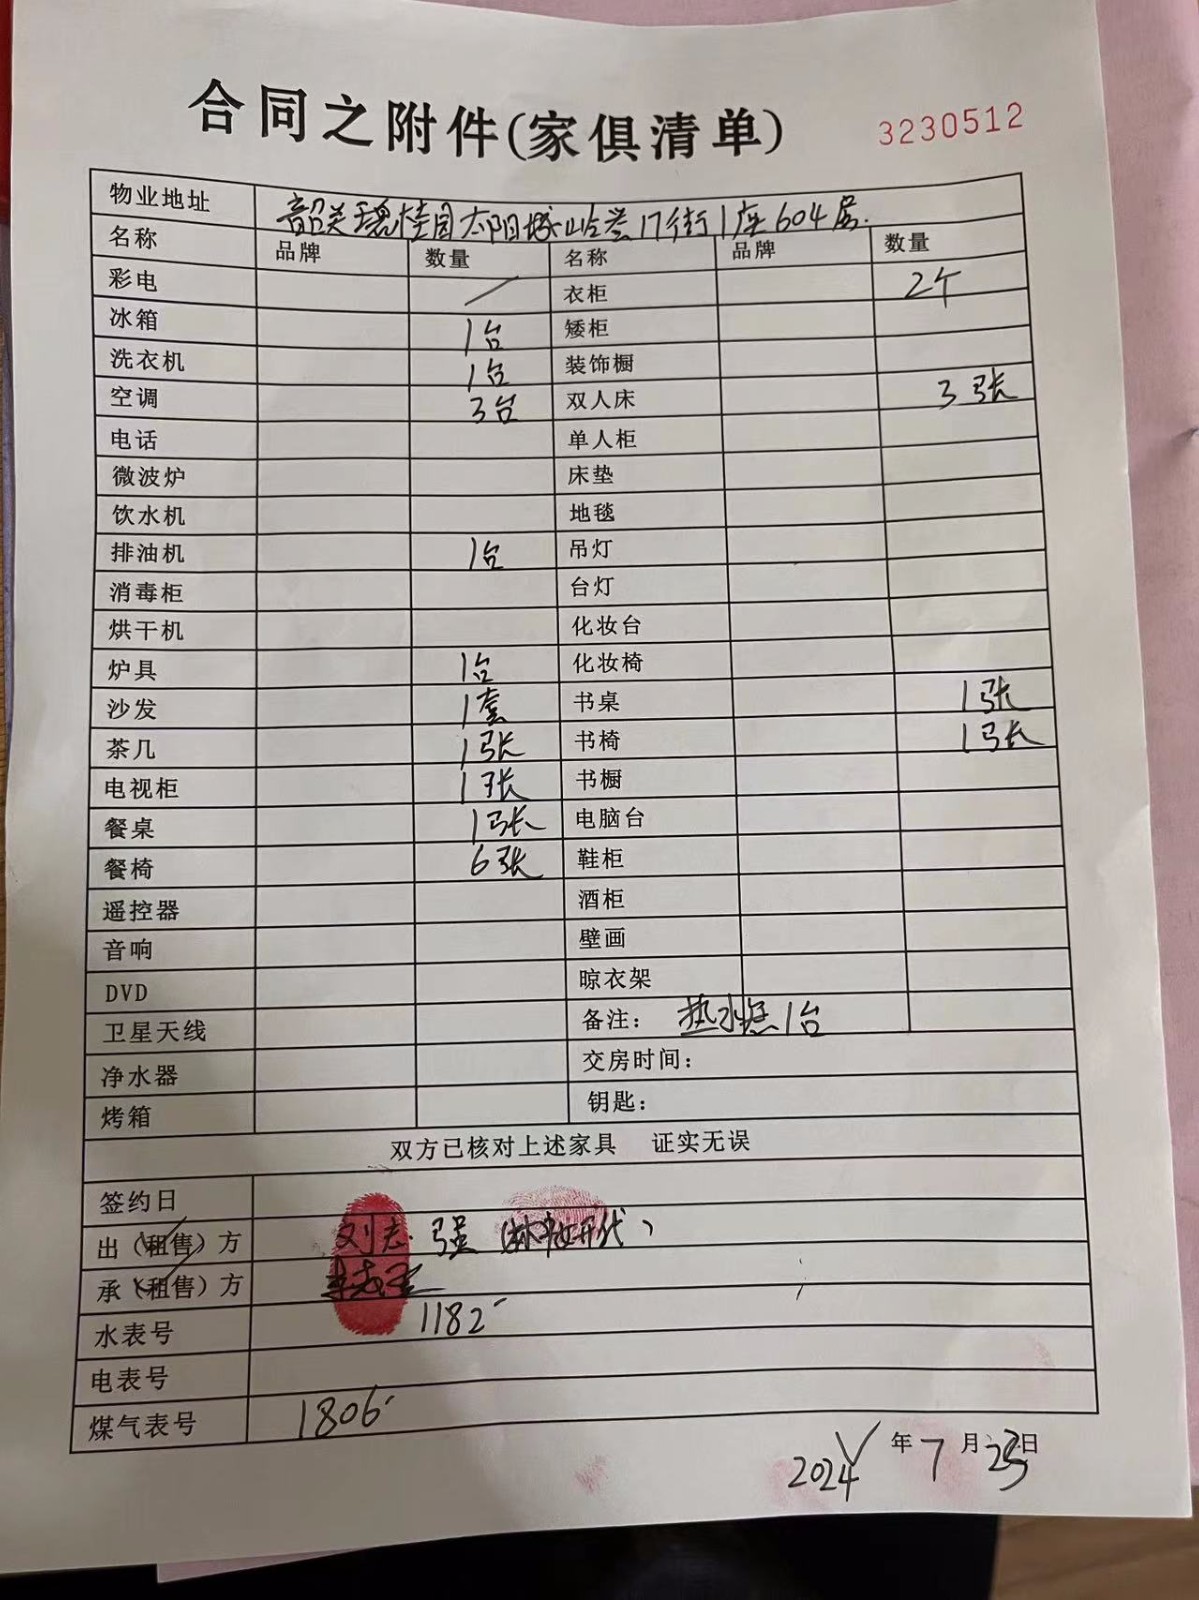 合同之附件(家俱清单)
3230512
物业地址 韶关碧桂园太阳城山铃誉17街1座604房.
名称 品牌 数量 名称 品牌 数量
彩电 / 衣柜 2个
冰箱 1台 矮柜
洗衣机 1台 装饰橱
空调 3台 双人床 3张
电话 单人柜
微波炉 床垫
饮水机 地毯
排油机 1台 吊灯
消毒柜 台灯
烘干机 化妆台
炉具 1台 化妆椅
沙发 1套 书桌 1张
茶几 1张 书椅 1张
电视柜 1张 书橱
餐桌 1张 电脑台
餐椅 6张 鞋柜
遥控器 酒柜
音响 壁画
DVD 晾衣架
卫星天线 备注: 热水器1台
净水器 交房时间:
烤箱 钥匙:
双方已核对上述家具 证实无误
签约日
出(租售)方 刘志强
承(租售)方
水表号 1182
电表号
煤气表号 1806
2024年7月25日